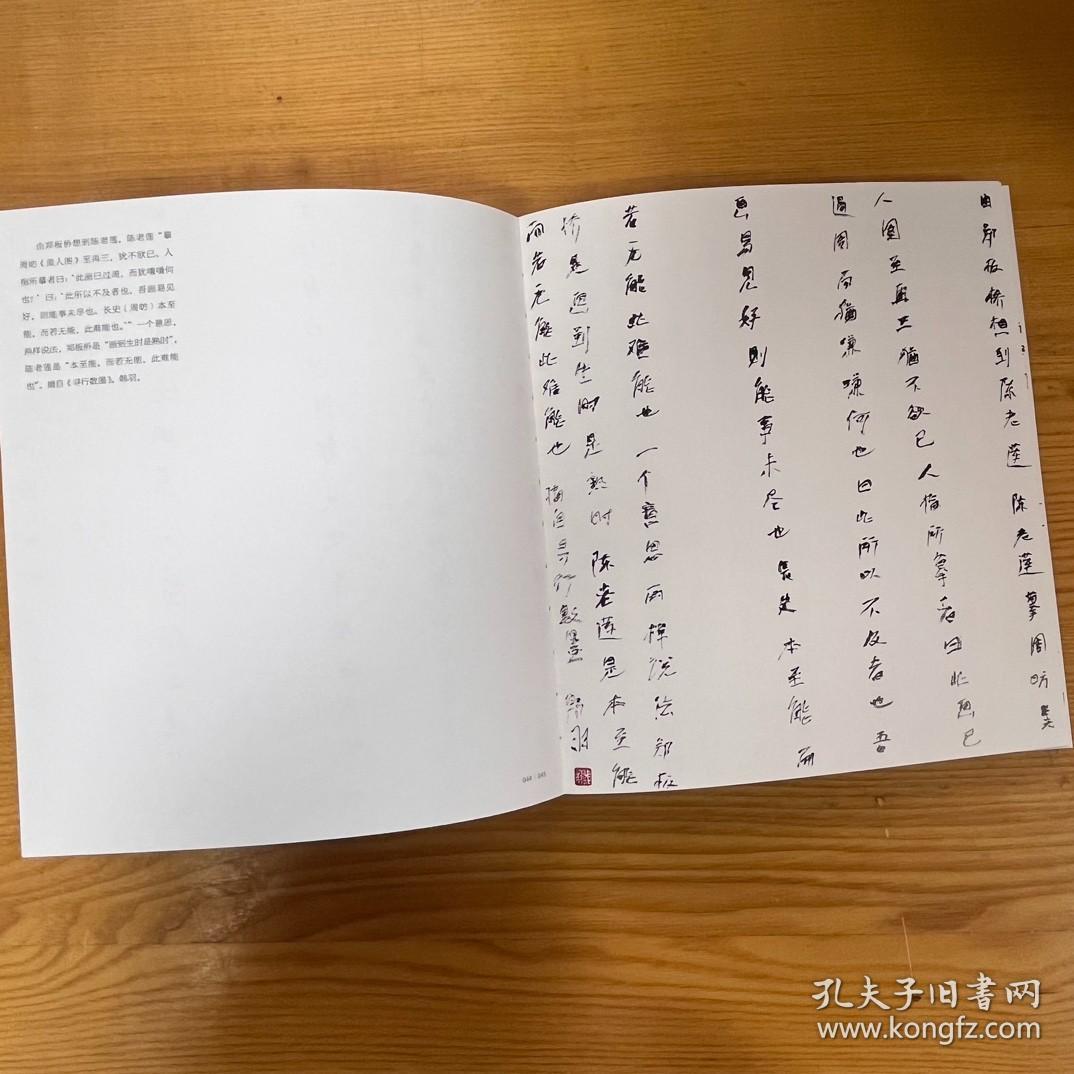 由郑板桥想到陈老莲。陈老莲“摹
周昉《美人图》至再三,犹不欲已。人
指所摹者曰:‘此画已过周,而犹嗛嗛何
也?’曰:‘此所以不及者也。吾画易见
好,则能事未尽也。长史(周昉)本至
能,而若无能,此难能也。’”一个意思,
两样说法,郑板桥是“画到生时是熟时”,
陈老莲是“本至能,而若无能,此难能
也”。摘自《寻行数墨》。韩羽。
044 | 045
由郑板桥想到陈老莲 陈老莲摹周昉美
人图至再三犹不欲已人指所摹者曰此画已
过周而犹嗛嗛何也曰此所以不及者也吾
画易见好则能事未尽也长史本至能而
若无能此难能也一个意思两样说法郑板
桥是画到生时是熟时陈老莲是本至能
而若无能此难能也 摘自寻行数墨 韩羽
孔夫子旧书网
www.kongfz.com